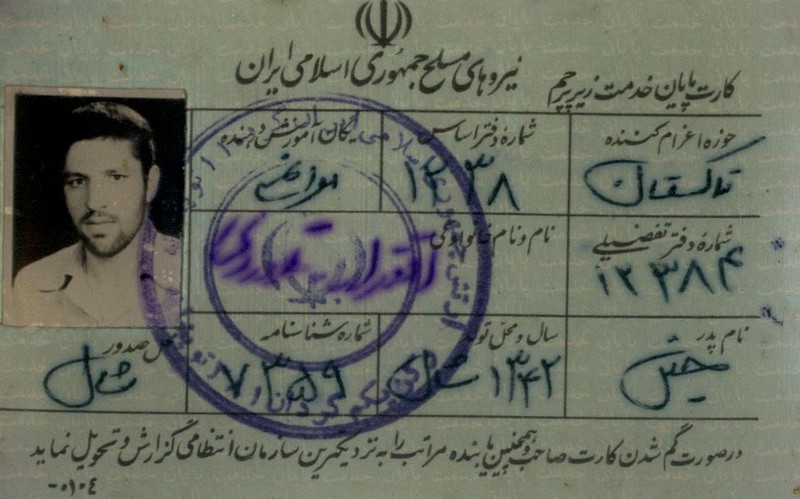 نیروهای مسلح جمهوری اسلامی ایران
کارت پایان خدمت زیر پرچم
حوزه اعزام کننده
تاکستان
شماره دفتر اساس
۱۲۳۸
یگان آموزش دهنده
شماره دفتر تفضیلی
۱۲۳۸۴
نام و نام خانوادگی
نام پدر
سال و محل تولد
۱۳۴۲
شماره شناسنامه
۷۳۵۹
محل صدور
در صورت گم شدن کارت صاحب و همچنین یابنده مراتب را به نزدیکترین سازمان انتظامی گزارش و تحویل نماید
۰۱۰۴-